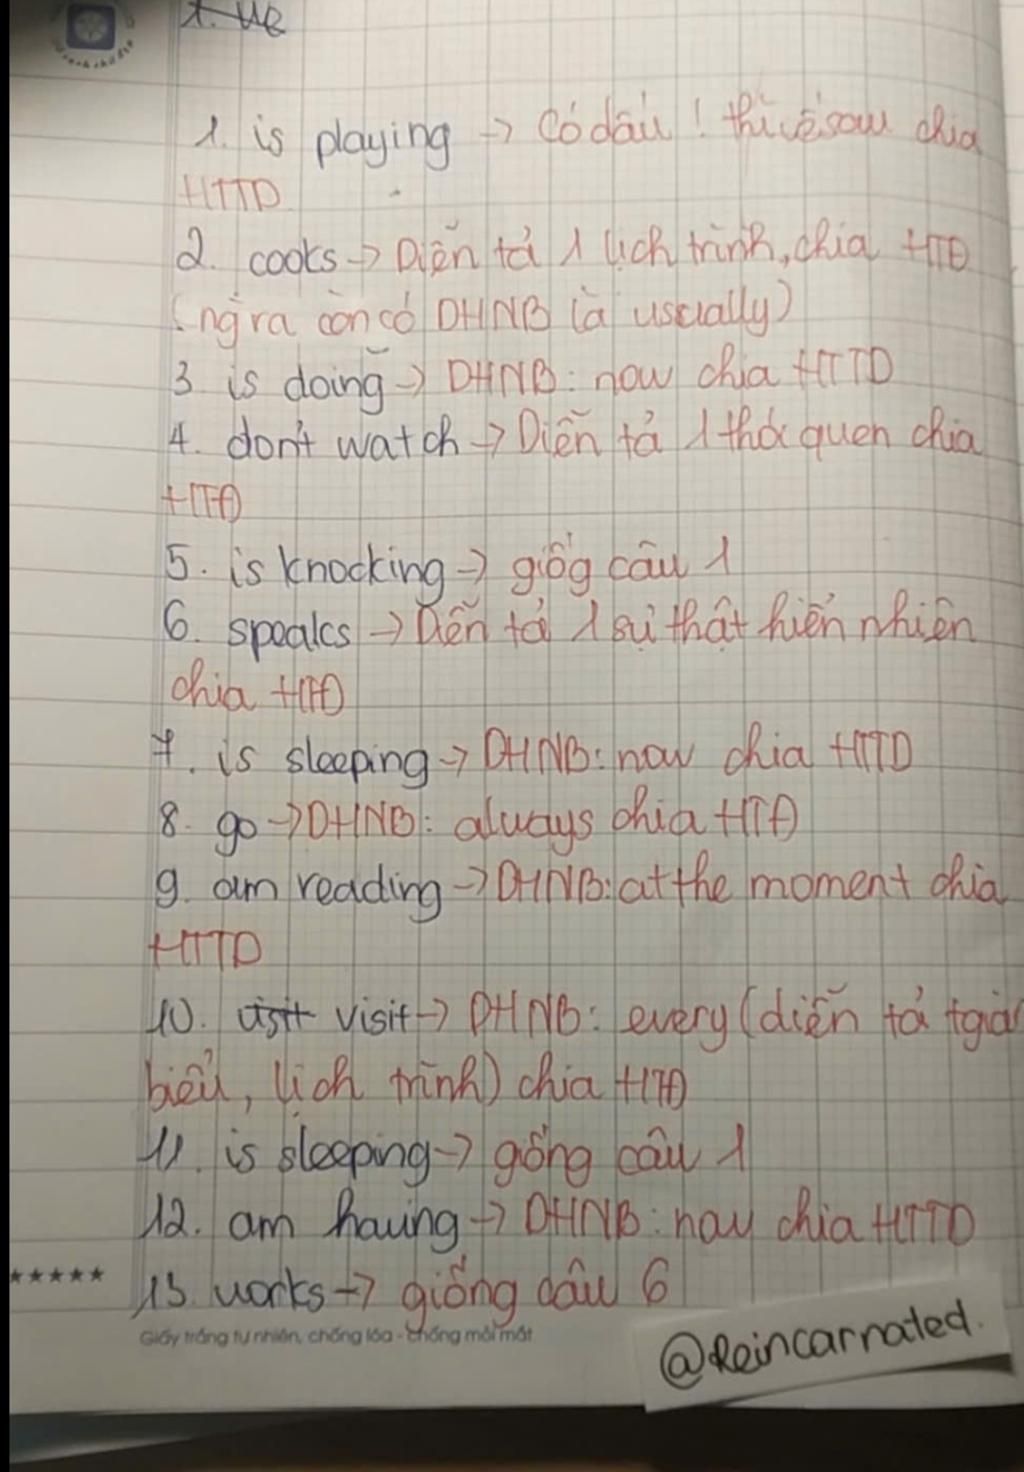 1. is playing → Có dấu ! thì vế sau chia
HTTD
2. cooks → Diễn tả 1 lịch trình, chia HTĐ
(ng̀ ra còn có DHNB là usually)
3 is doing → DHNB: now chia HTTD
4. don't watch → Diễn tả 1 thói quen chia
HTĐ
5. is knocking → giốg câu 1
6. speaks → Diễn tả 1 sự thật hiển nhiên
chia HTĐ
7. is sleeping → DHNB: now chia HTTD
8. go → DHNB: always chia HTĐ
9. am reading → DHNB: at the moment chia
HTTD
10. visit → DHNB: every (diễn tả tgian
biểu, lịch trình) chia HTĐ
11. is sleeping → giống câu 1
12. am having → DHNB: now chia HTTD
13. works → giống câu 6
Giấy trắng tự nhiên, chống lóa - chống mỏi mắt
@Reincarnated.